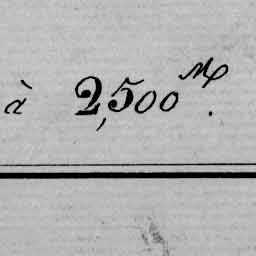 à 2,500 M.